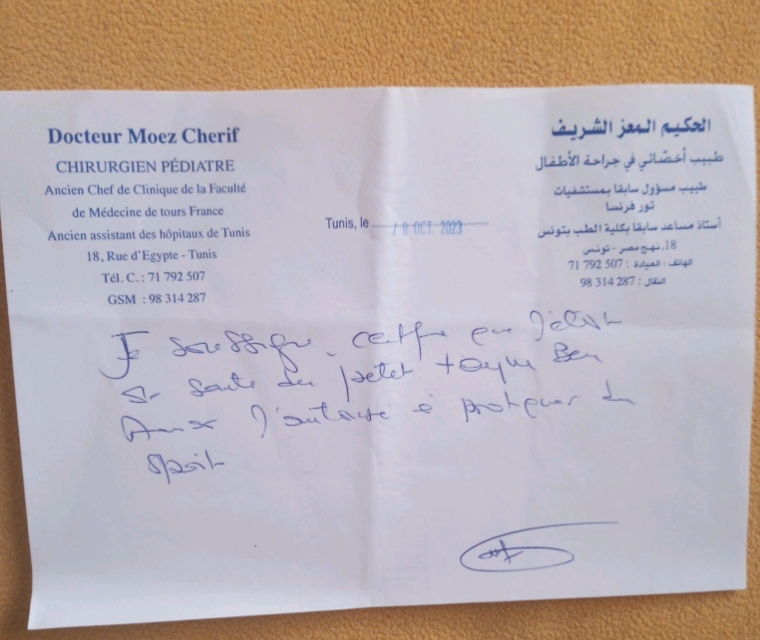 Docteur Moez Cherif
CHIRURGIEN PÉDIATRE
Ancien Chef de Clinique de la Faculté
de Médecine de tours France
Ancien assistant des hôpitaux de Tunis
18, Rue d'Egypte - Tunis
Tél. C. : 71 792 507
GSM : 98 314 287
الحكيم المعز الشريف
طبيب أخصّائي في جراحة الأطفال
طبيب مسؤول سابقا بمستشفيات
تور فرنسا
أستاذ مساعد سابقا بكلية الطب بتونس
18, نهج مصر - تونس
الهاتف : العيادة : 71 792 507
النقال : 98 314 287
Tunis, le 19 OCT. 2023
Je soussigné, certifie que l'état
de santé du petit Ben
l'autorise à pratiquer du
sport